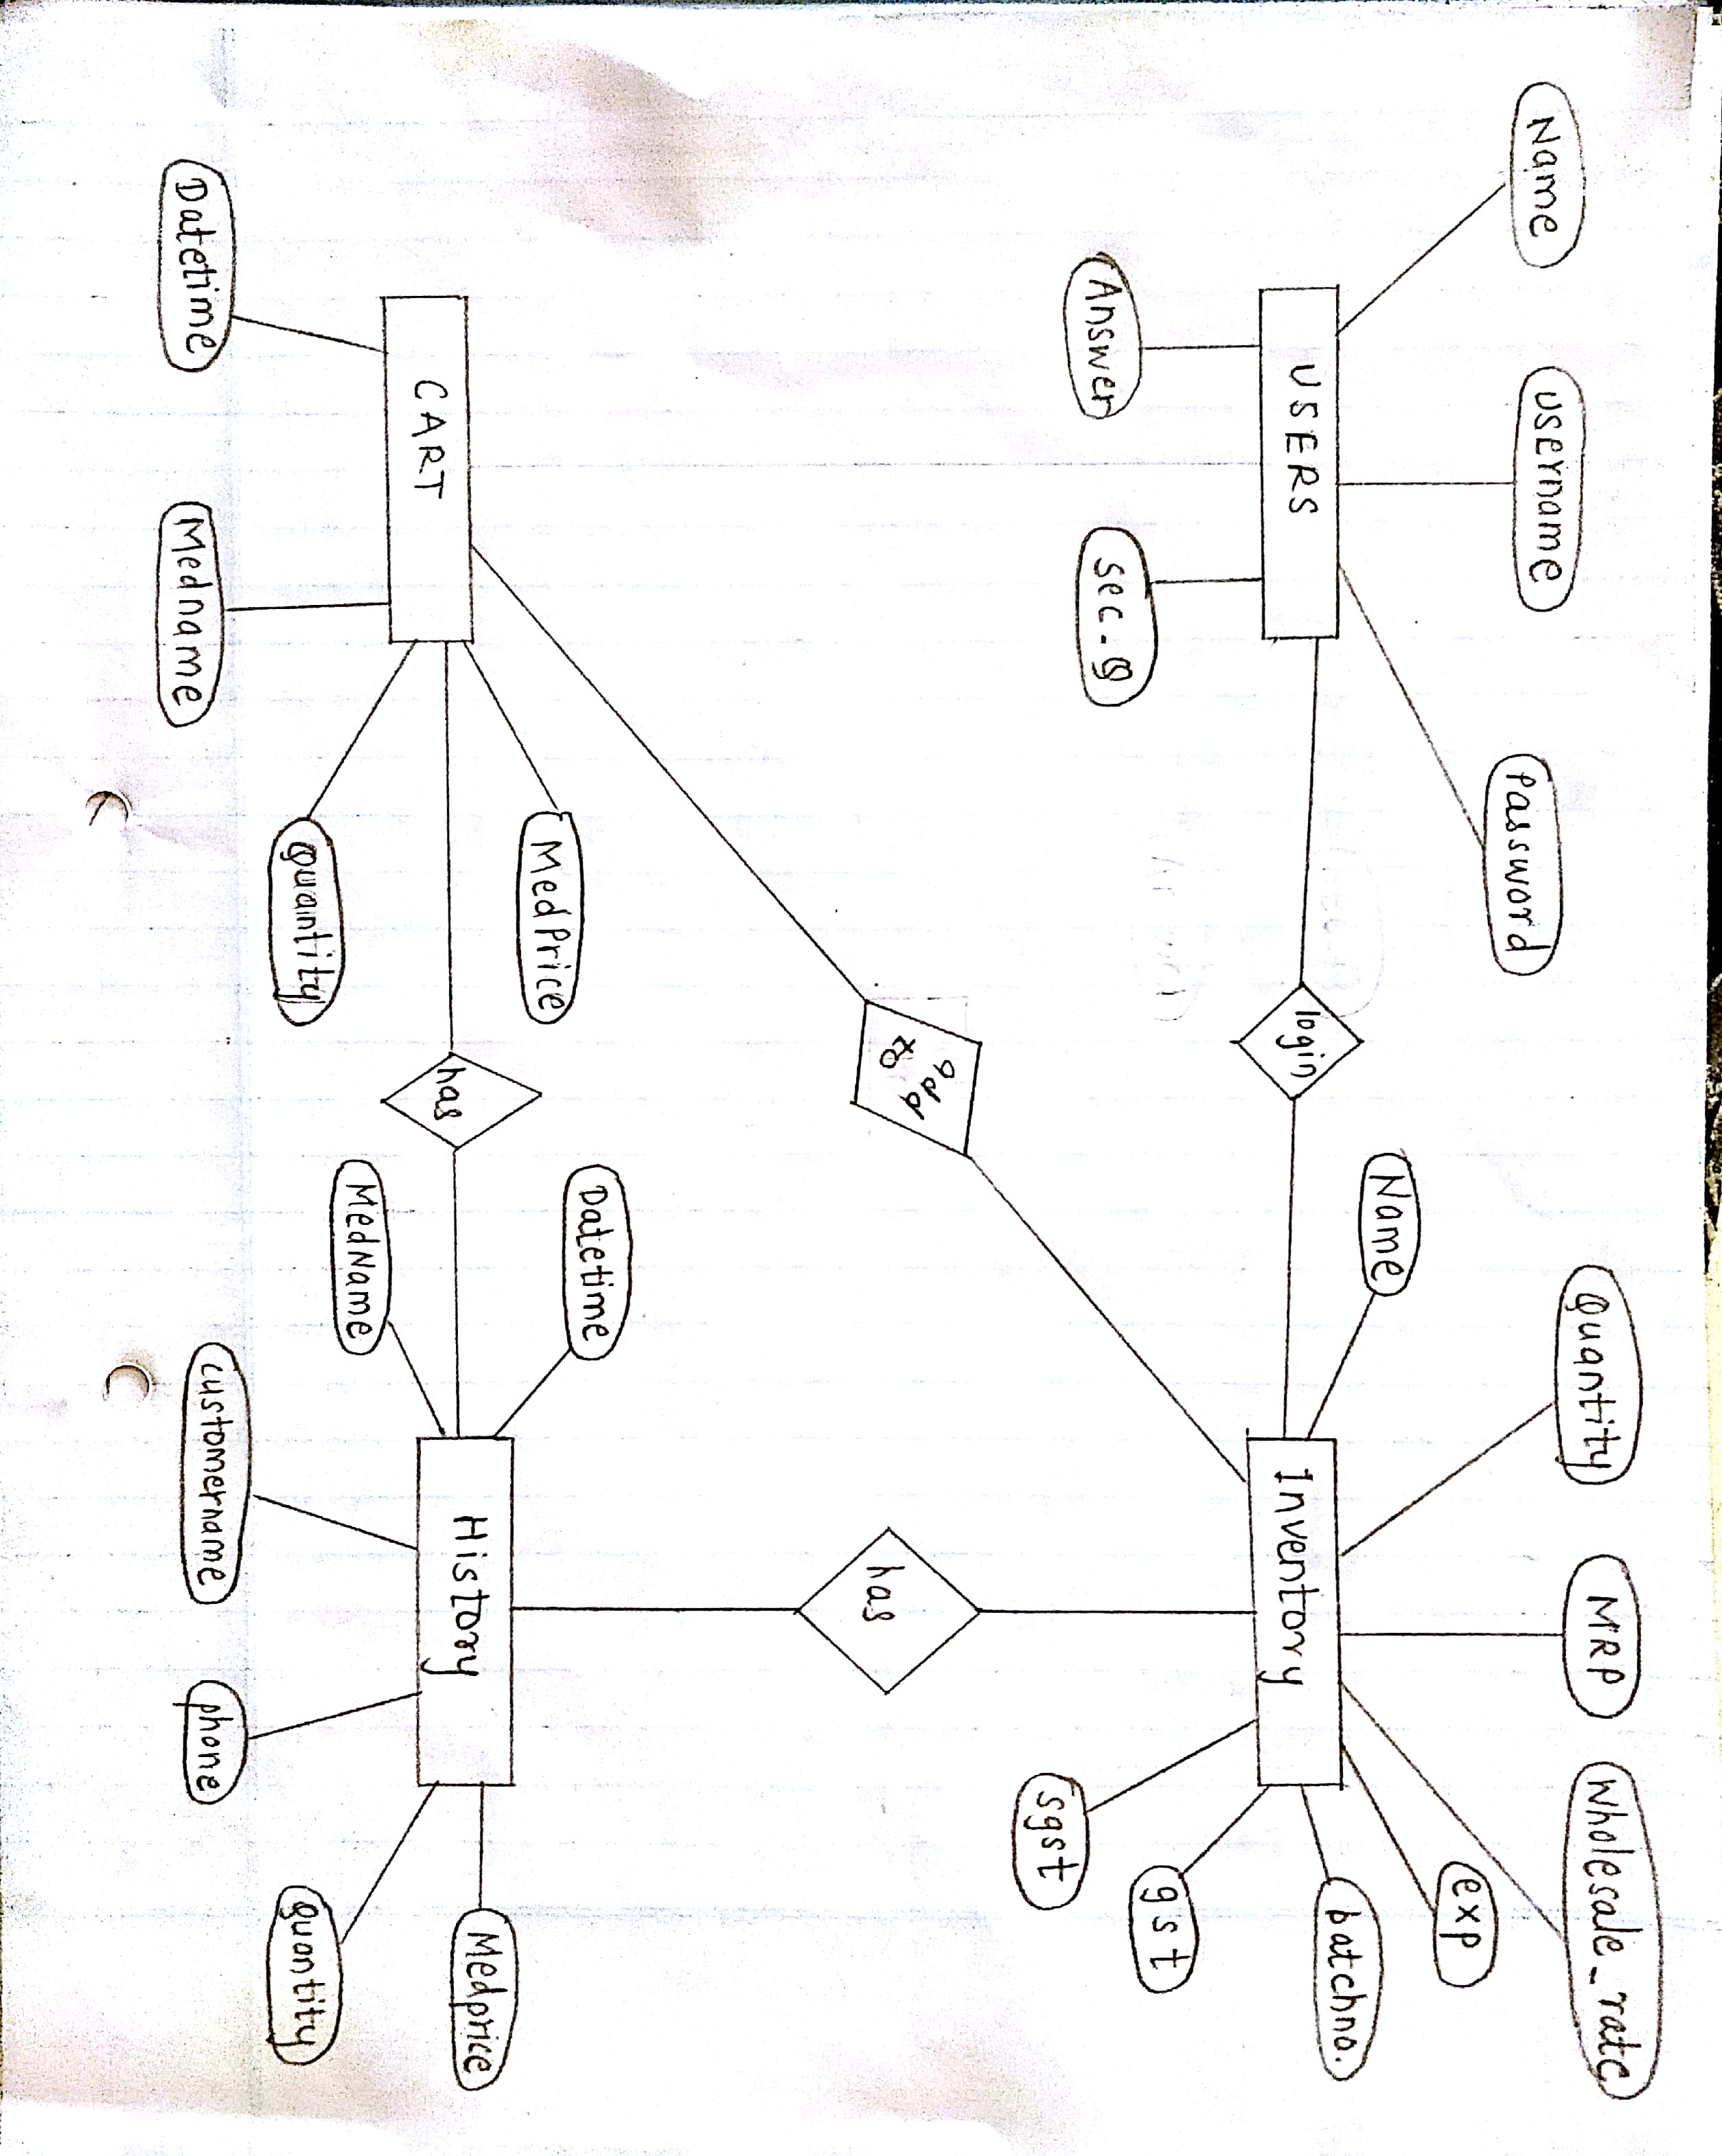 Name
username
Password
USERS
Answer
sec-Q
login
Name
Quantity
MRP
Wholesale_rate
exp
batchno.
gst
sgst
Inventory
add
to
has
CART
Datetime
Medname
Quantity
MedPrice
has
Datetime
MedName
customername
phone
quantity
Medprice
History